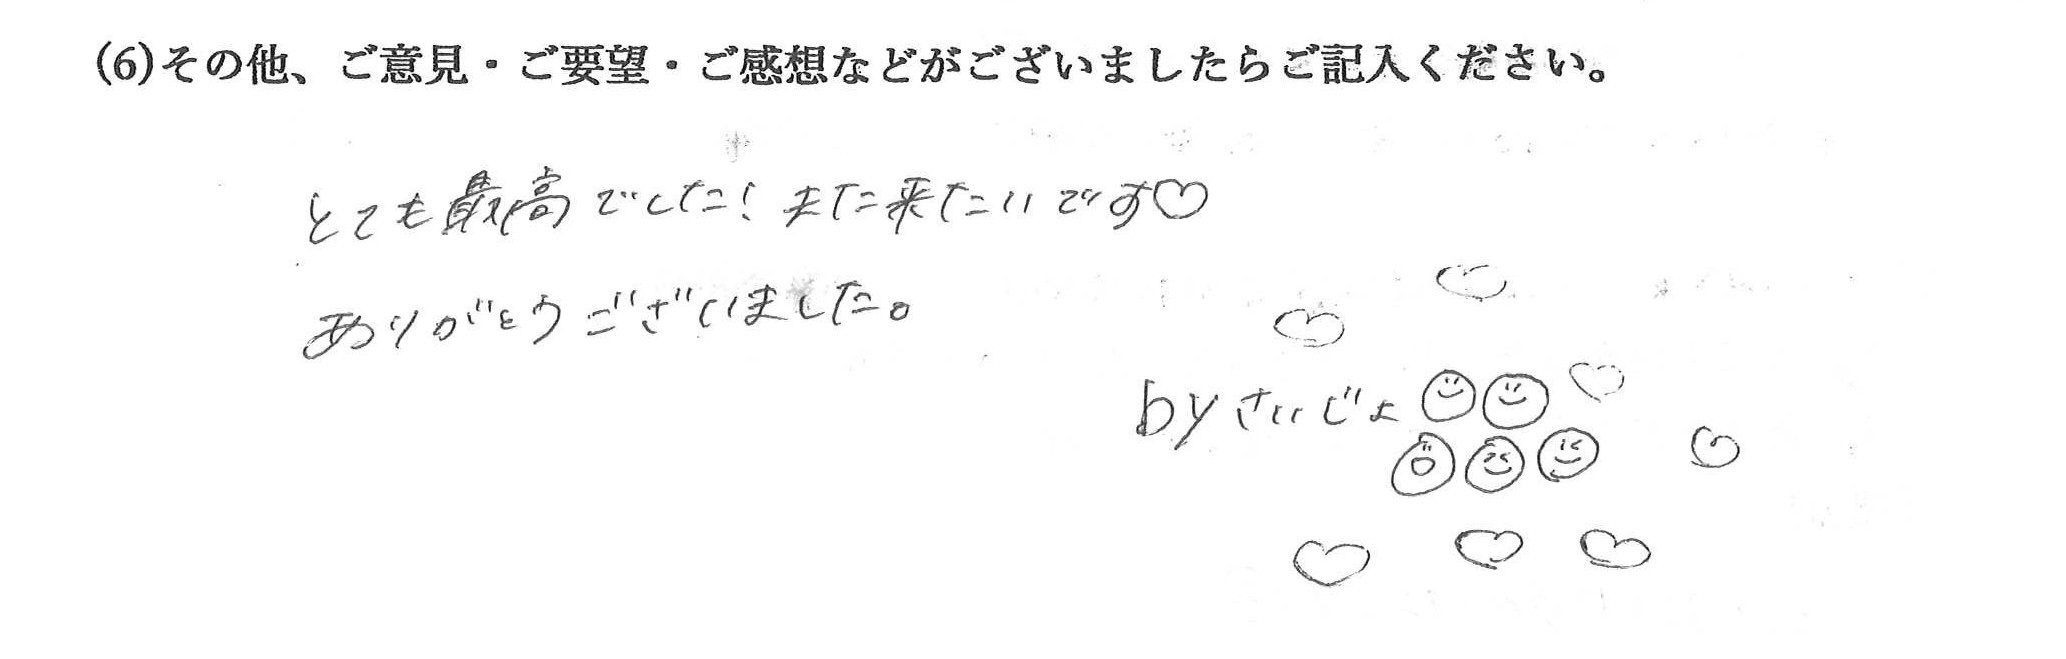 (6)その他、ご意見・ご要望・ご感想などがございましたらご記入ください。
とても最高でした!また来たいです♡
ありがとうございました。
byさいじょ